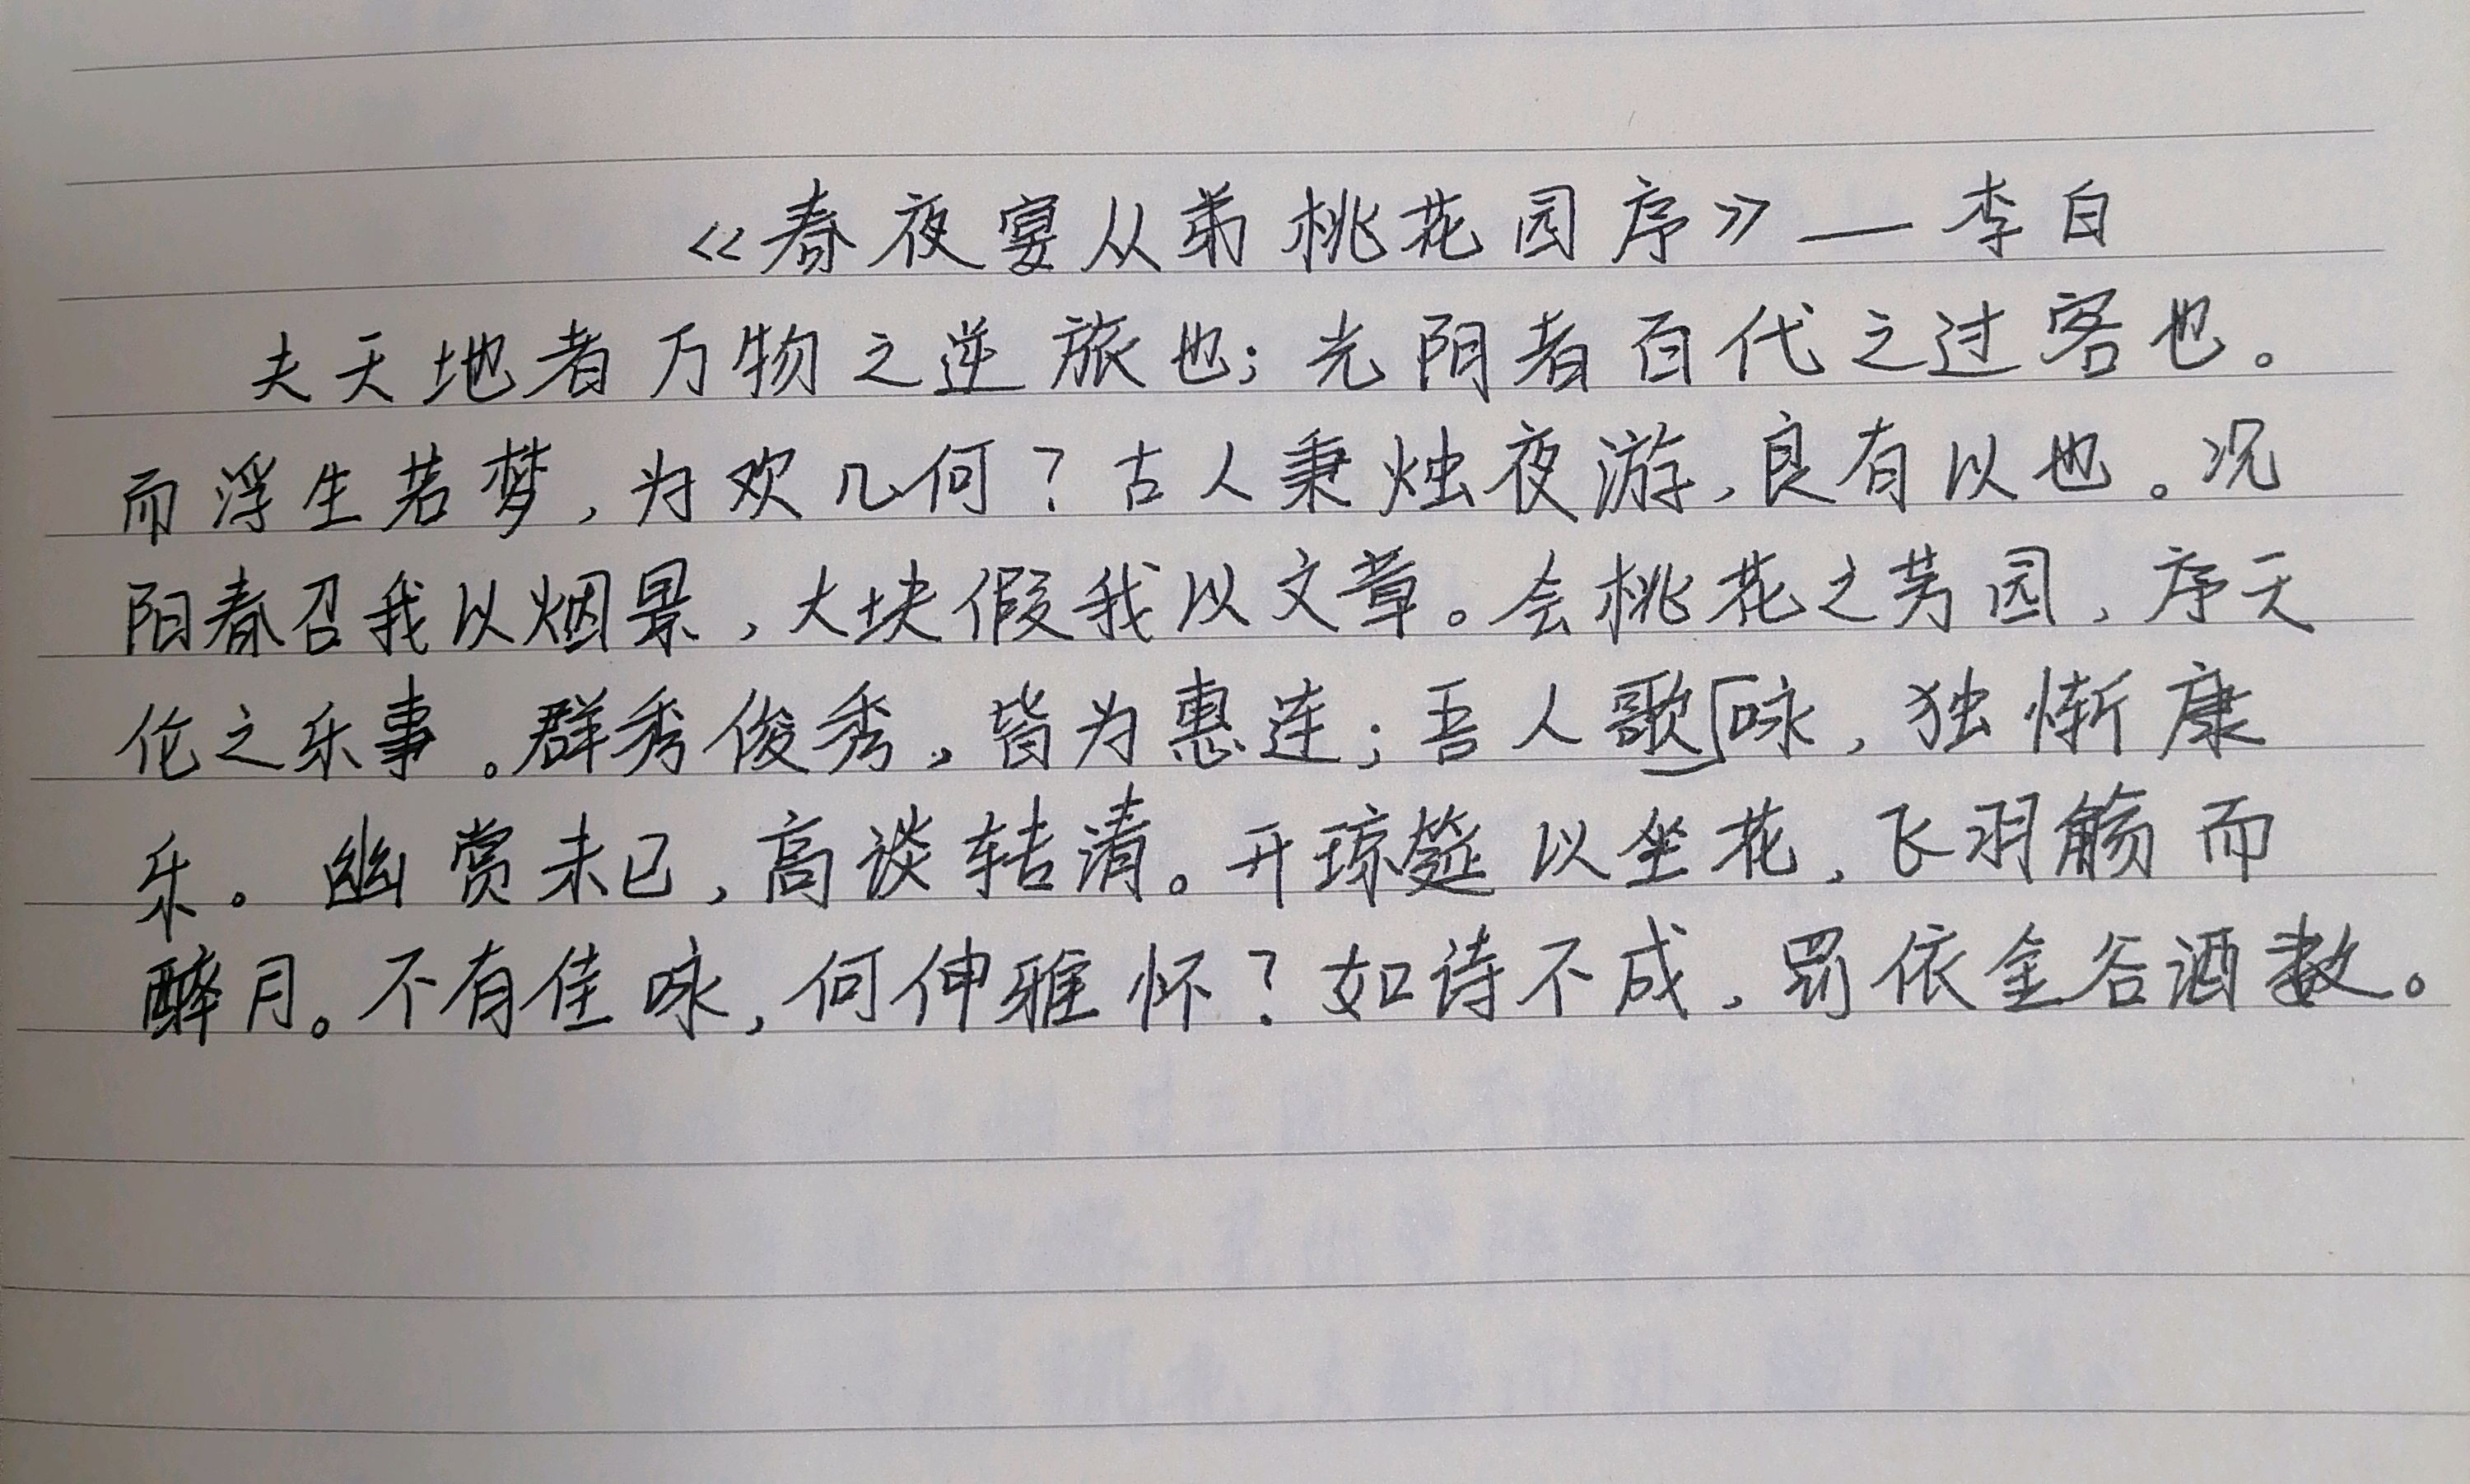 《春夜宴从弟桃花园序》—李白
夫天地者万物之逆旅也；光阴者百代之过客也。
而浮生若梦，为欢几何？古人秉烛夜游，良有以也。况
阳春召我以烟景，大块假我以文章。会桃花之芳园，序天
伦之乐事。群秀俊秀，皆为惠连；吾人歌咏，独惭康
乐。幽赏未已，高谈转清。开琼筵以坐花，飞羽觞而
醉月。不有佳咏，何伸雅怀？如诗不成，罚依金谷酒数。